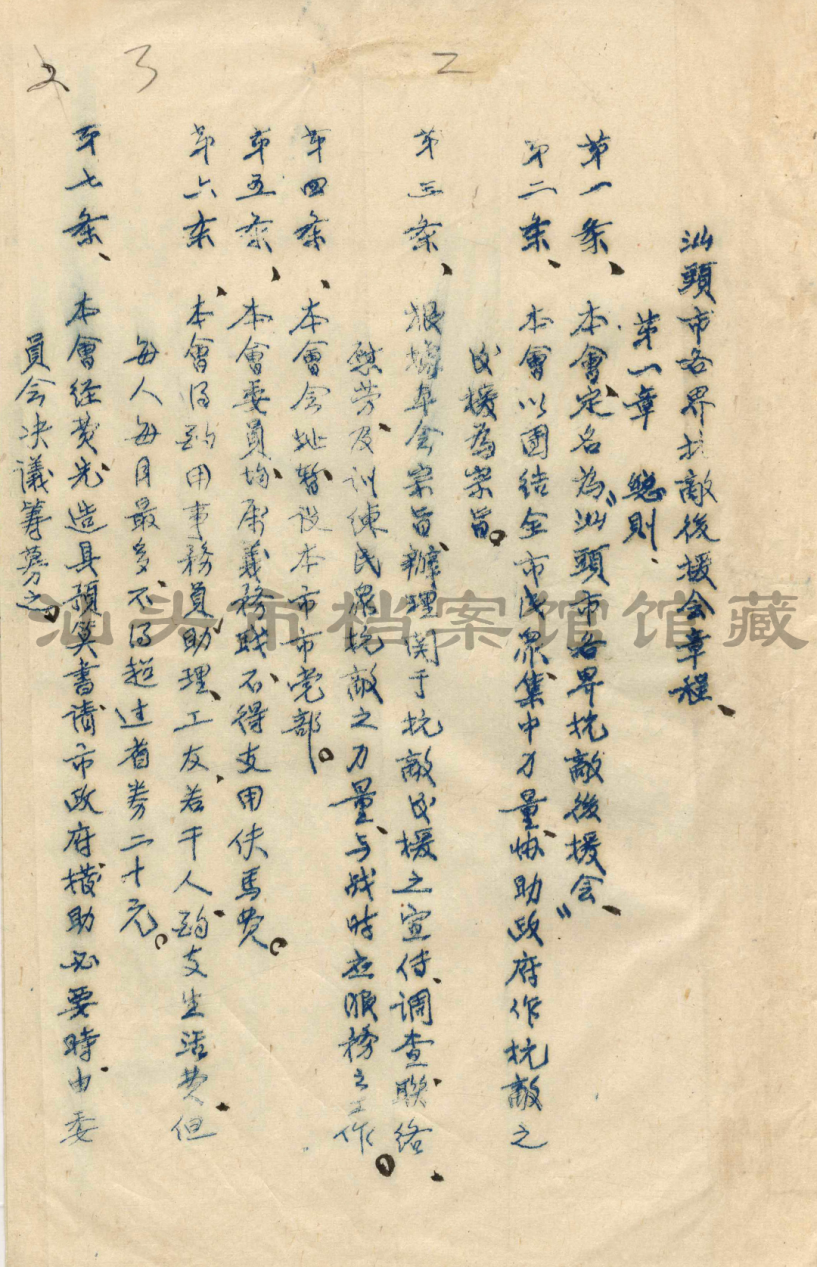 汕頭市各界抗敵後援会章程、
第一章 總則、
第一条、本會定名為“汕頭市各界抗敵後援会”、
第二条、本會以團结全市民眾、集中力量、协助政府作抗敵之
后援為宗旨。
第三条、根據本会宗旨、辦理関于抗敵后援之宣传、调查、聯络、
慰劳、及训練民眾抗敵之力量、与战时应服務之工作。
第四条、本會会址暂设本市市党部。
第五条、本會委員均属義務职、不得支用伕馬费。
第六条、本會得酌用事務員、助理、工友、若干人、酌支生活费、但
每人每月最多不得超过省券二十元。
第七条、本會经费先造具預算書请市政府撥助必要時、由委
員会决議筹募之。
2 3 2
汕头市档案馆馆藏